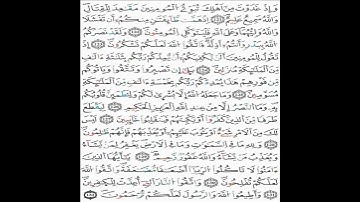 وَإِذْ غَدَوْتَ مِنْ أَهْلِكَ تُبَوِّئُ الْمُؤْمِنِينَ مَقَاعِدَ لِلْقِتَالِ
وَاللَّهُ سَمِيعٌ عَلِيمٌ ١٢١ إِذْ هَمَّت طَّائِفَتَانِ مِنكُمْ أَن تَفْشَلَا
وَاللَّهُ وَلِيُّهُمَا وَعَلَى اللَّهِ فَلْيَتَوَكَّلِ الْمُؤْمِنُونَ ١٢٢ وَلَقَدْ نَصَرَكُمُ
اللَّهُ بِبَدْرٍ وَأَنتُمْ أَذِلَّةٌ فَاتَّقُوا اللَّهَ لَعَلَّكُمْ تَشْكُرُونَ ١٢٣
مِّنَ الْمَلَائِكَةِ مُنزَلِينَ ١٢٤ بَلَىٰ إِن تَصْبِرُوا وَتَتَّقُوا وَيَأْتُوكُم
مِّن فَوْرِهِمْ هَٰذَا يُمْدِدْكُمْ رَبُّكُم بِخَمْسَةِ آلَافٍ مِّنَ الْمَلَائِكَةِ
مُسَوِّمِينَ ١٢٥ وَمَا جَعَلَهُ اللَّهُ إِلَّا بُشْرَىٰ لَكُمْ وَلِتَطْمَئِنَّ قُلُوبُكُم
بِهِ وَمَا النَّصْرُ إِلَّا مِنْ عِندِ اللَّهِ الْعَزِيزِ الْحَكِيمِ ١٢٦ لِيَقْطَعَ
طَرَفًا مِّنَ الَّذِينَ كَفَرُوا أَوْ يَكْبِتَهُمْ فَيَنقَلِبُوا خَائِبِينَ ١٢٧ لَيْسَ
لَكَ مِنَ الْأَمْرِ شَيْءٌ أَوْ يَتُوبَ عَلَيْهِمْ أَوْ يُعَذِّبَهُمْ فَإِنَّهُمْ ظَالِمُونَ ١٢٨
وَلِلَّهِ مَا فِي السَّمَاوَاتِ وَمَا فِي الْأَرْضِ يَغْفِرُ لِمَن يَشَاءُ
وَيُعَذِّبُ مَن يَشَاءُ وَاللَّهُ غَفُورٌ رَّحِيمٌ ١٢٩ يَا أَيُّهَا الَّذِينَ
آمَنُوا لَا تَأْكُلُوا الرِّبَا أَضْعَافًا مُّضَاعَفَةً وَاتَّقُوا اللَّهَ
لَعَلَّكُمْ تُفْلِحُونَ ١٣٠ وَاتَّقُوا النَّارَ الَّتِي أُعِدَّتْ لِلْكَافِرِينَ ١٣١
وَأَطِيعُوا اللَّهَ وَالرَّسُولَ لَعَلَّكُمْ تُرْحَمُونَ ١٣٢